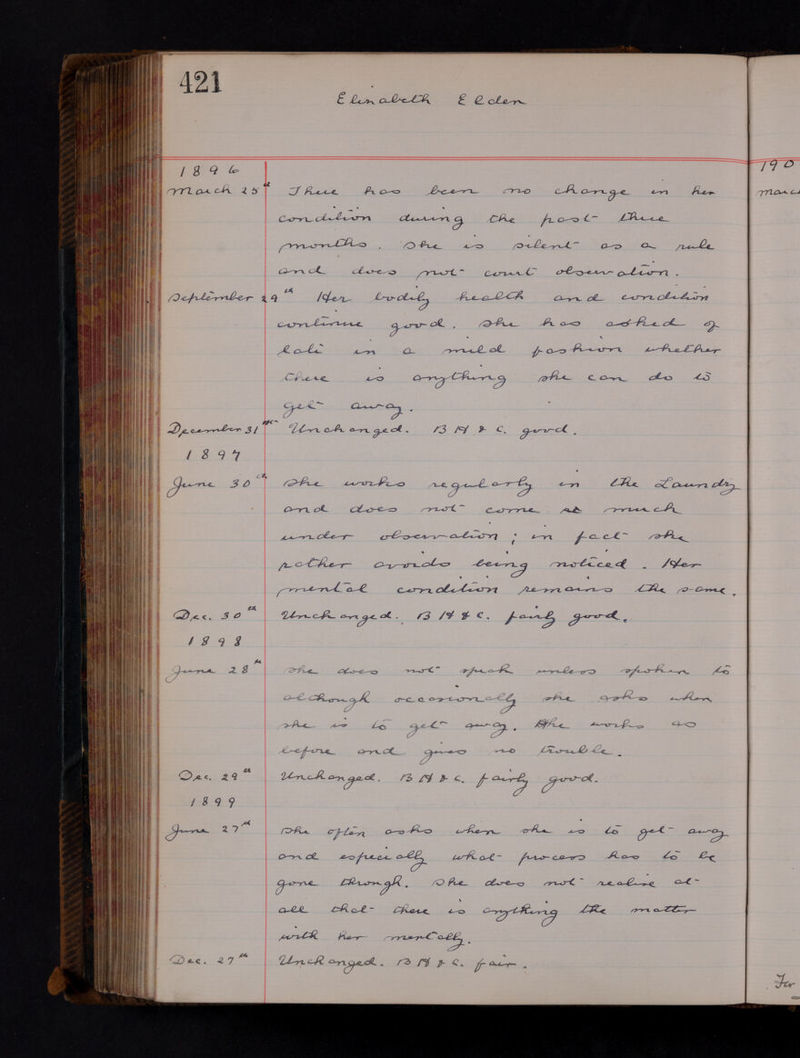 421
Elizabeth Elden
1896
190
March 25th There has been no change in her
condition during the past three
months. She is silent as a rule
and does not court observation.
September 29th Her bodily health and condition
continue good. She has asked of
late in a mild fashion whether
there is anything she can do to
get away.
December 31st Unchanged. B H & C. good.
1897
June 30th She works regularly in the Laundry
and does not come so much
under observation; in fact she
rather avoids being noticed. Her
mental condition remains the same.
Dec. 30th Unchanged. B H & C. fairly good.
1898
June 28th She does not speak unless spoken to
although occasionally she asks when
she is to get away. She works as
before and gives no trouble.
Dec. 29th Unchanged. B H & C. fairly good.
1899
June 27th She often asks when she is to get away
and especially what process has to be
gone through. She does not realise at
all that there is anything the matter
with her mentally.
Dec. 27th Unchanged. B H & C. fair.